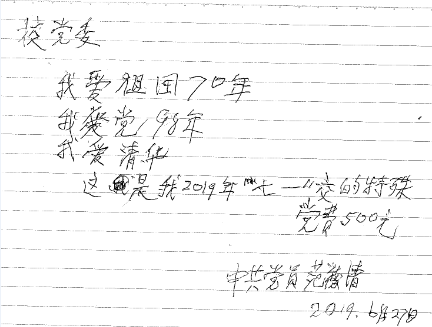 校党委
我爱祖国70年
我爱党98年
我爱清华
这是我2019年"七一"交的特殊
党费500元
中共党员范
2019.6月27日